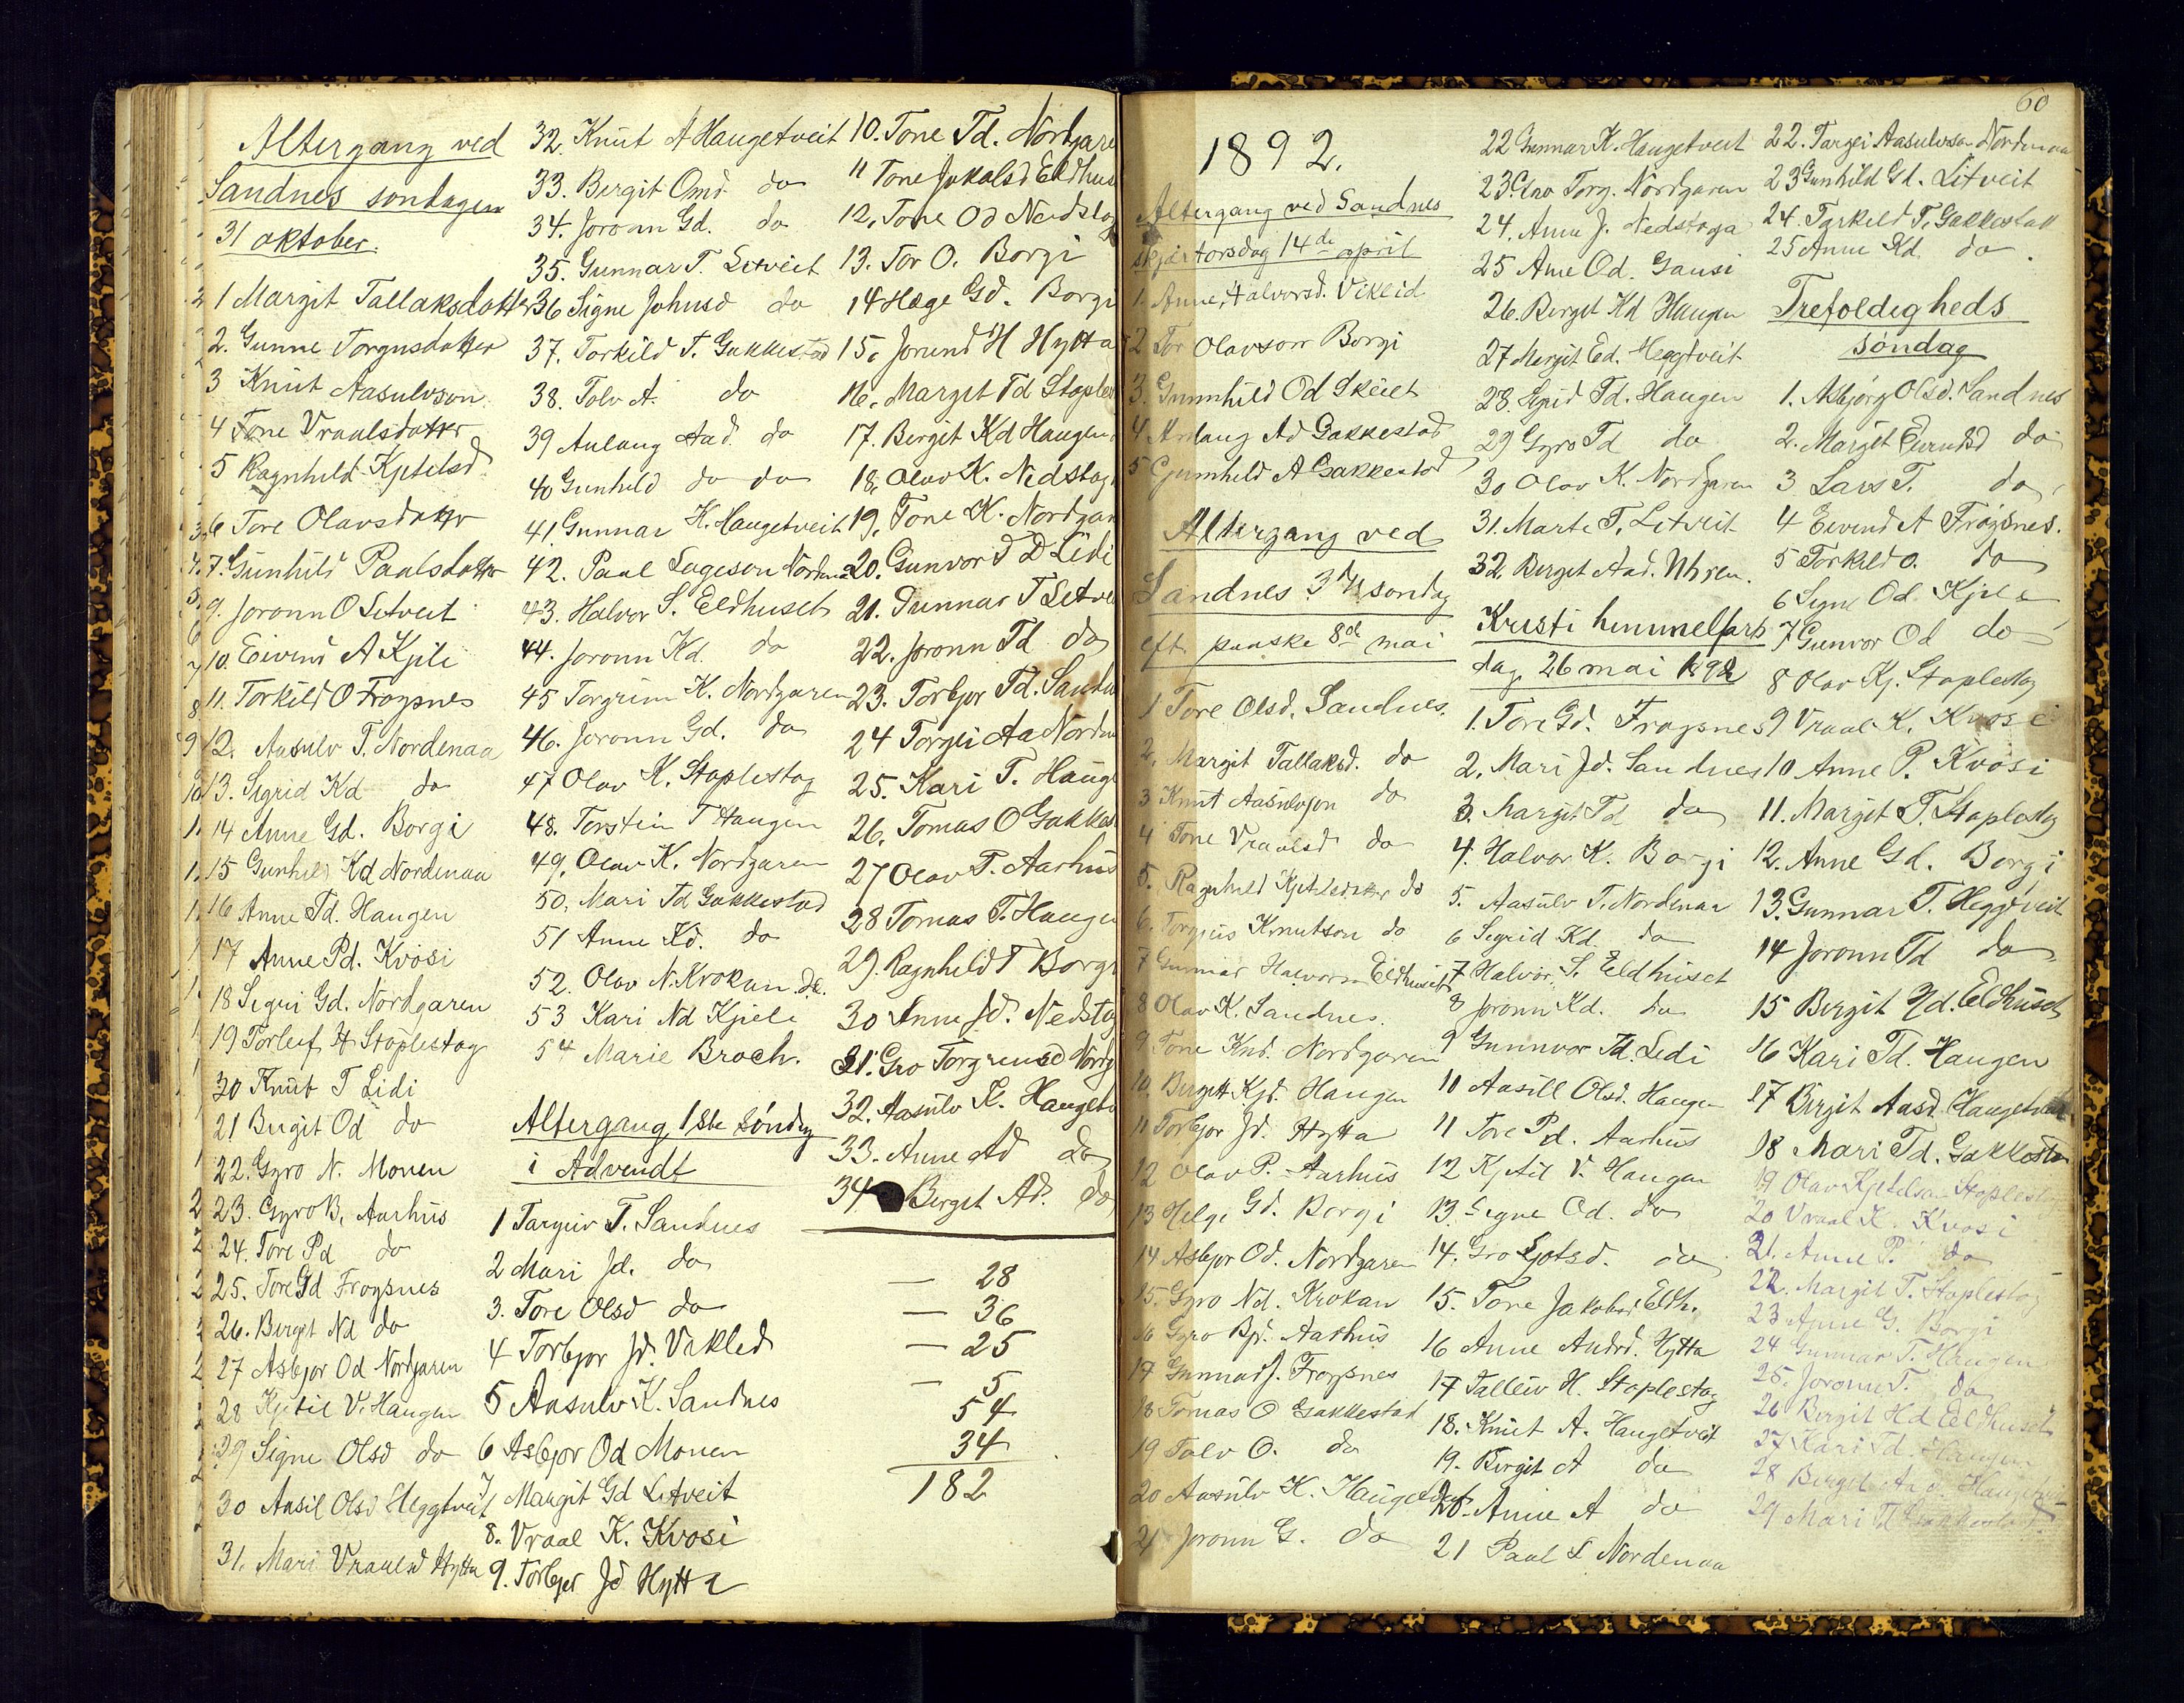 Altergang ved
Sandnes søndagen
31 oktober.
1 Margit Tallaksdatter
2. Gunne Torgusdatter
3 Knut Aasulvson
4 Tone Vraalsdatter
5 Ragnhild Kjetilsd
6 Tore Olavsdatter
7. Gunhild Paalsdatter
9. Joronn O Litveit
10. Eivind A Kjile
11. Torkild O Frøysnes
12. Aasulv T. Nordenaa
13. Sigrid Kd do
14 Anne Gd. Borgi
15 Gunhild Kd Nordenaa
16 Anne Td. Haugen
17 Anne Pd. Kvosi
18 Sigui Gd. Nordgaren
19 Torleif H Stoplestog
20 Knut T Lidi
21 Bergit Od do
22. Gyro N. Monen
23. Gyro B. Aarhus
24. Tore Pd do
25. Tore Gd Frøysnes
26. Bergit Nd do
27 Asbjor Od Nordgaren
28 Kjetil V. Haugen
29 Signe Olsd do
30 Aasil Olsd Heggtveit
31. Mari Vraalsd Hytta
32. Knut A Haugetveit
33. Bergit Omd do
34. Joronn Gd. do
35. Gunnar T. Litveit
36 Signe Johnsd do
37. Torkild T. Gakkestad
38. Tolv A. do
39 Aulaug Aad. do
40 Gunhild do do
41 Gunnar K. Haugetveit
42. Paal Lageson Nordenaa
43. Halvor S. Eldhuset
44. Joronn Kd. do
45 Torgrim K. Nordgaren
46. Joronn Gd. do
47 Olav K. Stoplestog
48. Torstein T Haugen
49. Olav K. Nordgaren
50. Mari Td Gakkestad
51 Anne Kd. do
52. Olav N. Krokan do.
53 Kari Nd Kjile
54 Marie Broch.
Altergang 1ste søndag
i Advendt
1 Targeiv T. Sandnes
2 Mari Jd. do
3. Tore Olsd do
4 Torbjor Jd. Viklid
5 Aasulv K. Sandnes
6 Asbjor Od Monen
7 Margit Gd Litveit
8. Vraal K. Kvosi
9. Torbjor Jd Hytta
10. Tone Td. Nordgare
11 Tone Jakobsd Eldhus
12. Tone Od Nedstog
13. Tor O. Borgi
14 Hæge Gd. Borgi
15. Jorund H Hytta
16. Margit Td Stoples
17. Bergit Kd Haugen
18. Olav K. Nedstog
19. Tone K. Nordgar
20. Gunvor T D Lidi
21. Gunnar T Litve
22. Joronn Td do
23. Torbjor Td. Sandn
24 Torgei Aa Norden
25. Kari T. Hauge
26. Tomas O Gakkes
27 Olav T. Aarhus
28 Tomas T. Haugen
29. Ragnhild T Borgi
30 Anne Jd. Nedstog
31. Gro Torgrimsd Nordg
32. Aasulv K. Haugetv
33. Anne Ad do
34 Bergit Ad. do
— 28
— 36
— 25
— 5
54
34
182
60
1892.
Altergang ved Sandnes
skjærtorsdag 14de april
1. Anne Halvorsd. Viklid
2 Tor Olavson Borgi
3. Gunnhild Od Skeiet
4 Aulaug Ad Gakkestad
5 Gunnhild A Gakkestad
Altergang ved
Sandnes 3die søndag
eft paaske 8de mai
1 Tore Olsd. Sandnes.
2. Margit Tallaksd. do
3 Knut Aasulvson do
4 Tone Vraalsd do
5. Ragnhild Kjetilsdatter do
6. Torgius Knutson do
7 Gunnar Halvorsn Eldhuset
8 Olav K. Sandnes.
9 Tone Knd. Nordgaren
10. Bergit Kjd. Haugen
11 Torbjor Jd. Hytta
12 Olav P. Aarhus
13 Helge Gd. Borgi
14 Asbjor Od. Nordgaren
15. Gyro Nd. Krokan
16 Gyro Bjd. Aarhus
17 Gunnar J. Frøysnes
18 Tomas O Gakkestad
19 Tolv O. do
20 Aasulv K. Haugetveit
21 Joronn G. do
22 Gunnar K. Haugetveit
23 Olav Torg. Nordgaren
24. Anne J. Nedstoga
25 Ane Od. Gausi
26. Berget Kd Haugen
27 Mergit Ed. Heggtveit
28. Sigrid Td. Haugen
29 Gyro Td do
30 Olav K. Nordgaren
31. Marte T. Litveit
32. Berget Aad. Uhren.
Kristi himmelfarts
dag, 26 mai 1892
1. Tore Gd. Frøysnes
2. Mari Jd. Sandnes
3. Margit Td do
4. Halvor K. Borgi
5. Aasulv T. Nordenaa
6 Sigrid Kd. do
7 Halvor S. Eldhuset
8 Joronn Kd. do
9 Gunnvor Td. Lidi
11 Aasill Olsd. Haugen
11 Tore Pd. Aarhus
12 Kjetil V. Haugen
13. Signe Od. do
14. Gro Ljotsd. do
15. Tone Jakobsd Eldh.
16 Anne Andrd. Hytta
17 Talleiv H. Stoplestog
18. Knut A. Haugetveit
19. Bergit A do
20. Anne A do
21 Paal L Nordenaa
22. Targei Aasulvson Nordenaa
23 Gunhild Gd. Litveit
24. Torkild T. Gakkestad
25 Anne Kd. do.
Trefoldigheds
søndag
1. Asbjørg Olsd. Sandnes
2. Margit Eivindsd do
3 Lars T. do
4 Eivind A Frøysnes.
5 Torkild O. do
6 Signe Od. Kjile
7 Gunvor Od do
8 Olav Kj. Stoplestog
9 Vraal K. Kvosi
10 Anne P. Kvosi
11. Margit T. Stoplestog
12. Anne Gd. Borgi
13. Gunnar T. Heggtveit
14 Joronn Td do
15 Bergit Hd. Eldhuset
16 Kari Td. Haugen
17 Birgit Aasd. Haugetveit
18 Mari Td. Gakkesta
19 Olav Kjetilson Stoplestog
20 Vraal K. Kvosi
21. Anne P. do
22. Margit T. Stoplestog
23 Anne G. Borgi
24 Gunnar T. Haugen
25. Joronn T. do
26 Bergit Hd Eldhuset
27 Kari Td Haugen
28 Bergit Aad Haugetveit
29 Mari Td Gakkestad